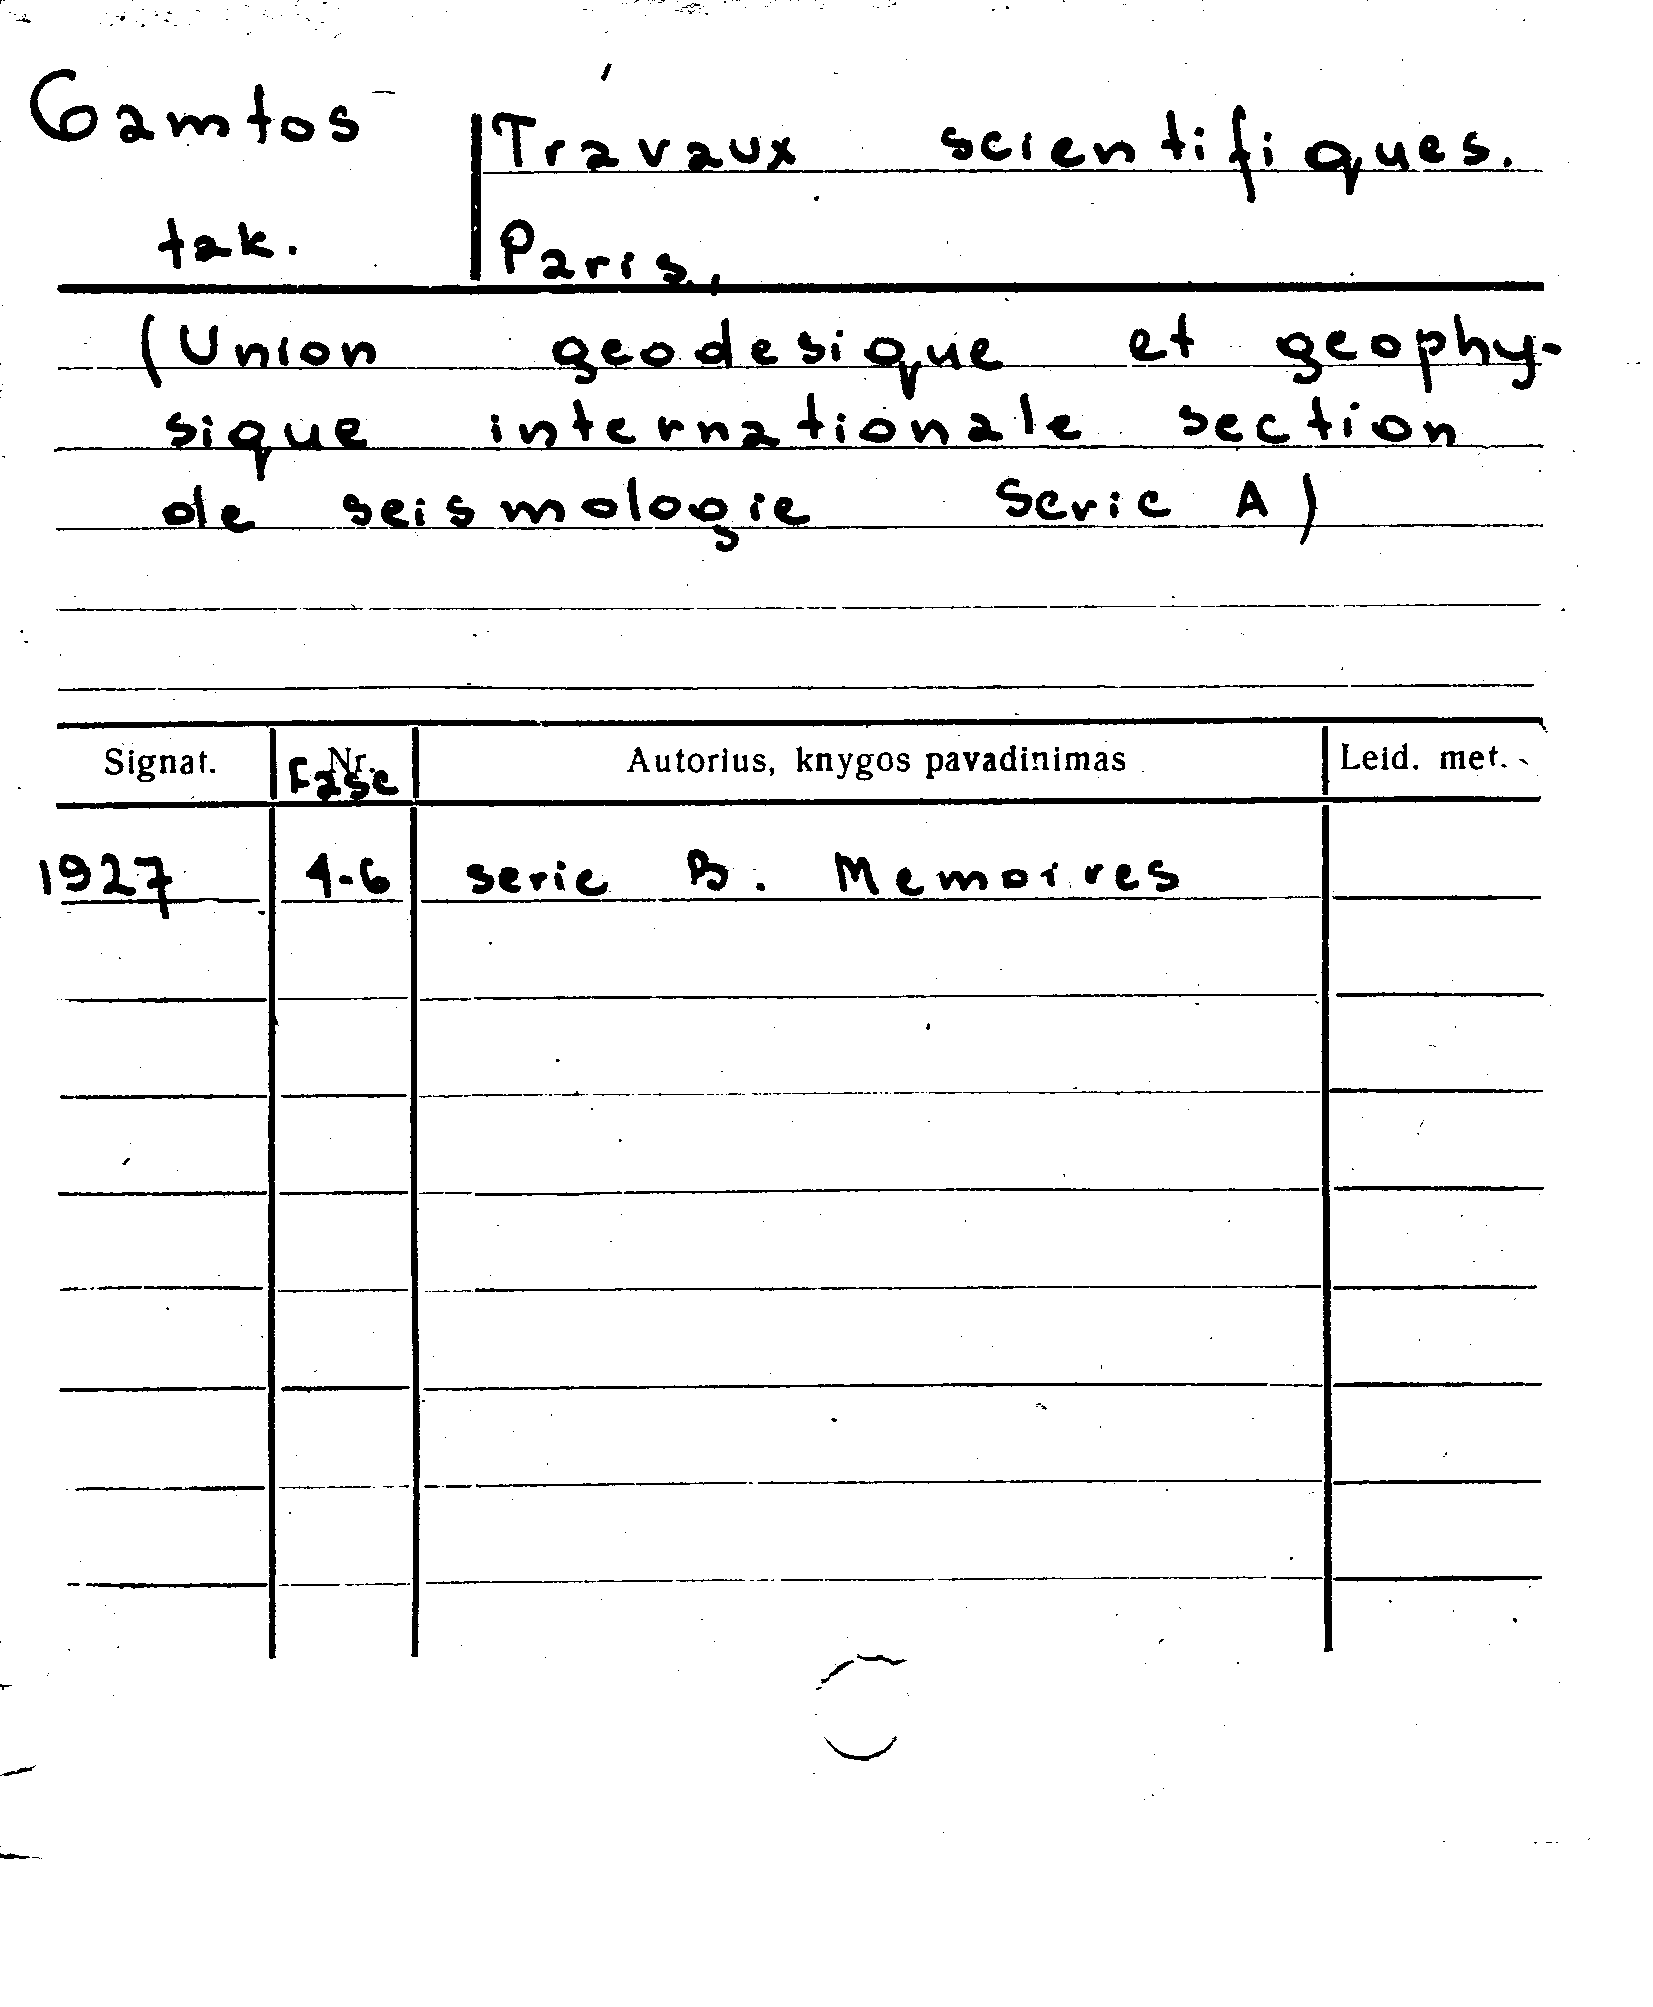 Gamtos
Travaux scientifiques.
tak.
Paris,
(Union geodesique et geophy-
sique internationale section
de seismologie Serie A)
Signat.
Nr.
Fasc
Autorius, knygos pavadinimas
Leid. met.
1927
4-6
serie B. Memoires